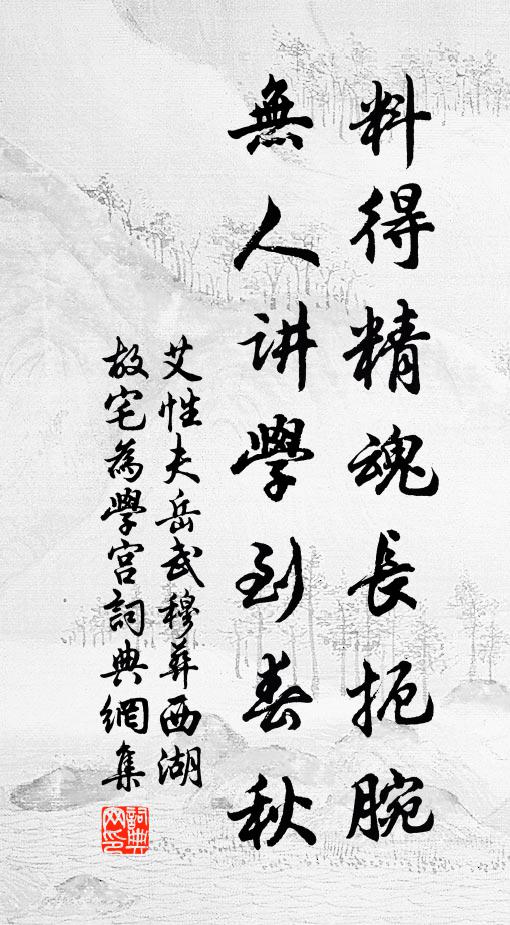 料得精魂長扼腕
無人讲學到春秋
艾性夫岳武穆葬西湖
故宅為學宮詞典網集
詞典網印